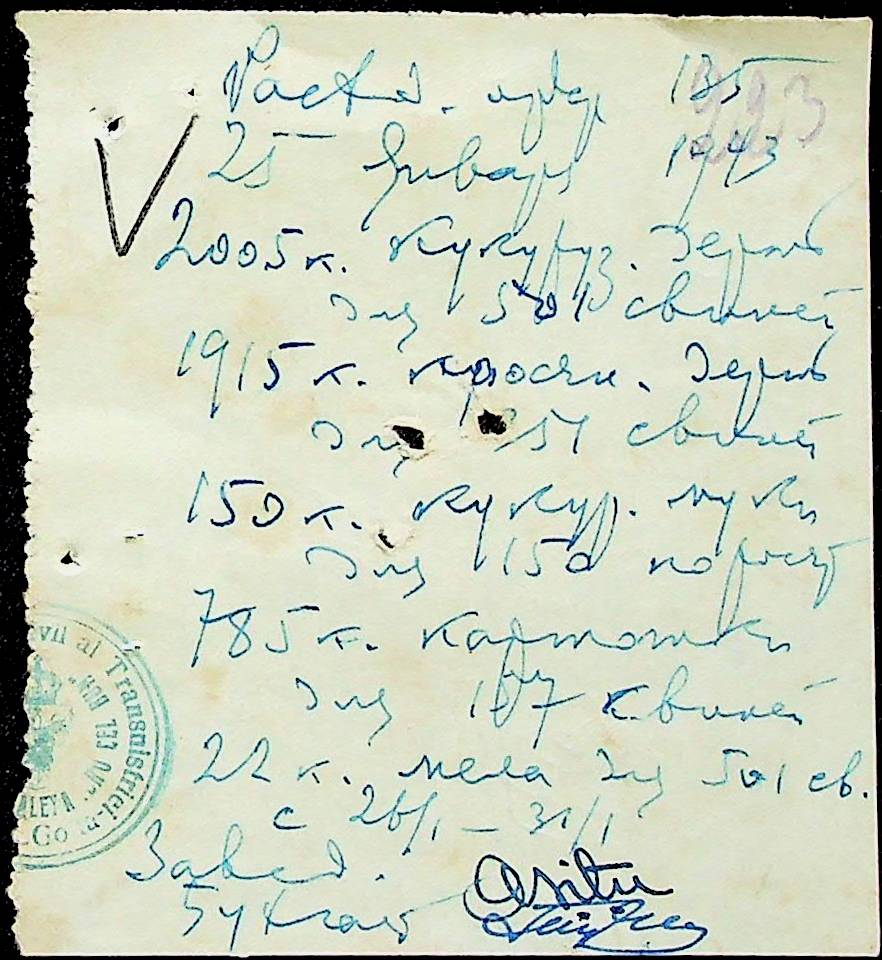 Расход. ордер 135
223
25 Января 1943
2005 к. Кукуруз. Зерно
Для 501 свиней
1915 к. просян. Зерно
Для 351 свиней
150 к. кукур. муки
Для 150 поросят
785 к. картошки
Для 157 свиней
22 к. мела Для 501 св.
с 26/I – 31/I
Завед.
vil al Transnistriei
ALEYA
Go